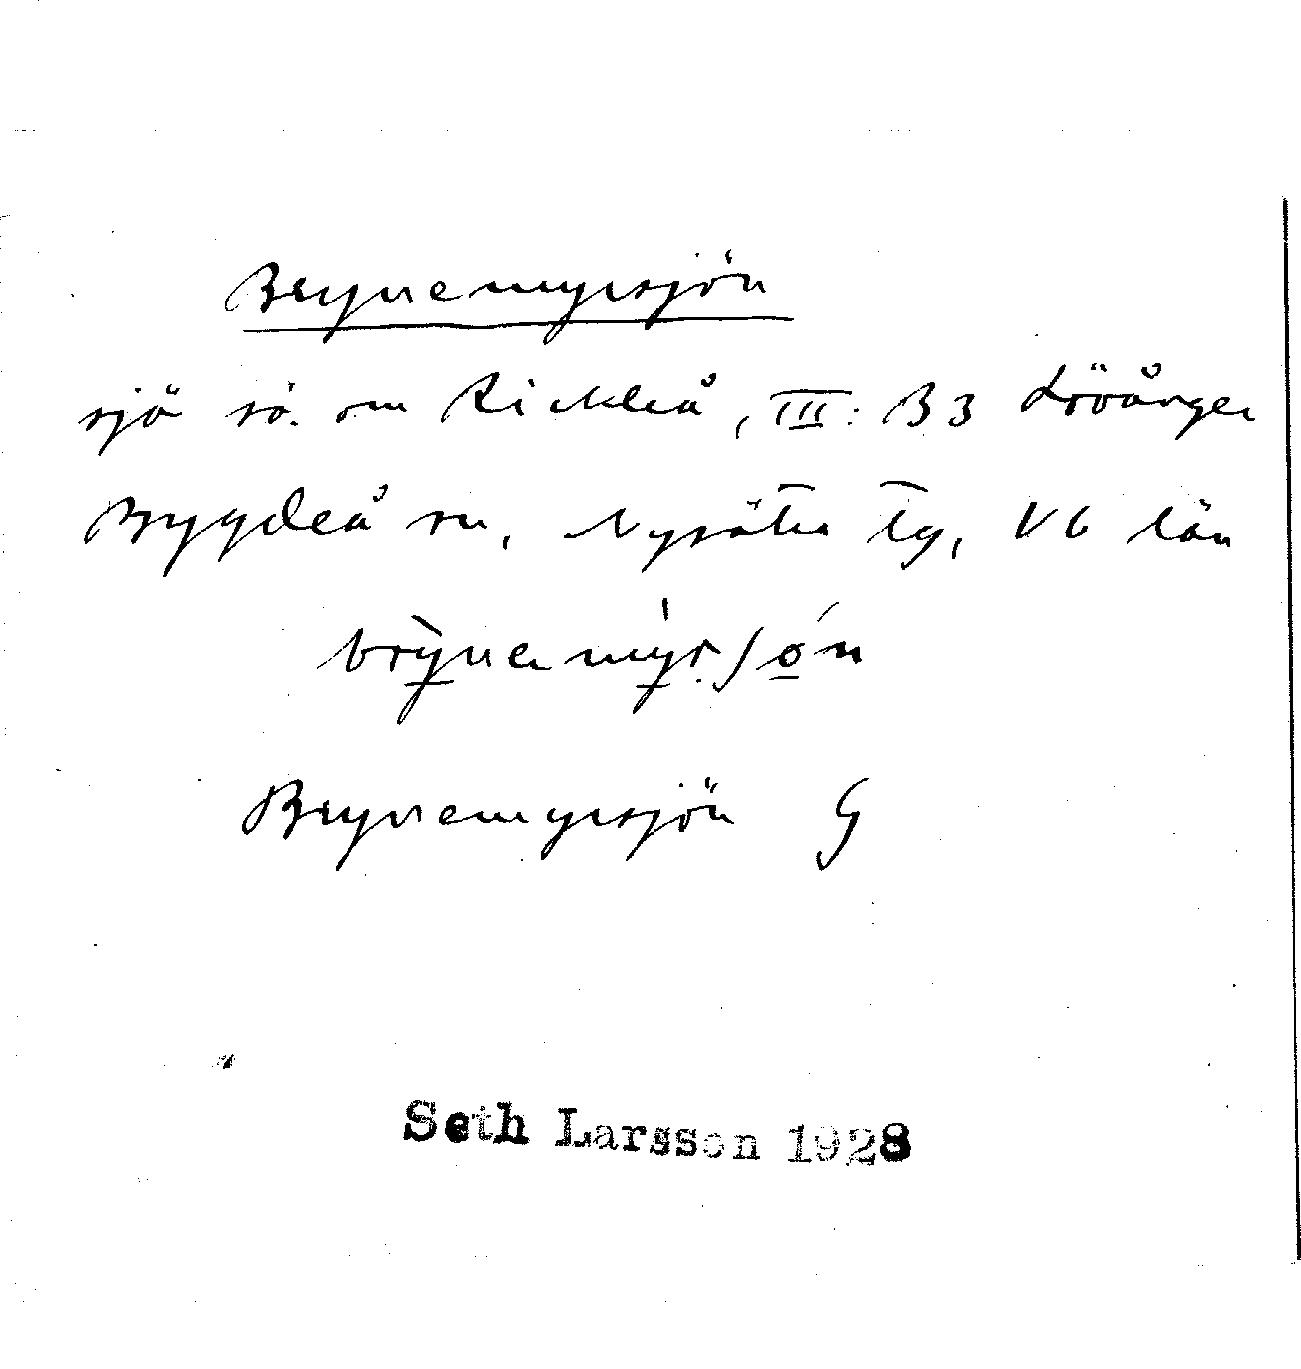 Brynemyrsjön
sjö sö. om Rickleå, III: B3 Lövånger
Bygdeå sn, Nysätra tg, Vb län
brỳ̱nemỳ̱r.ʃǿ̱n
Brynemyrsjön G
Seth Larsson 1928